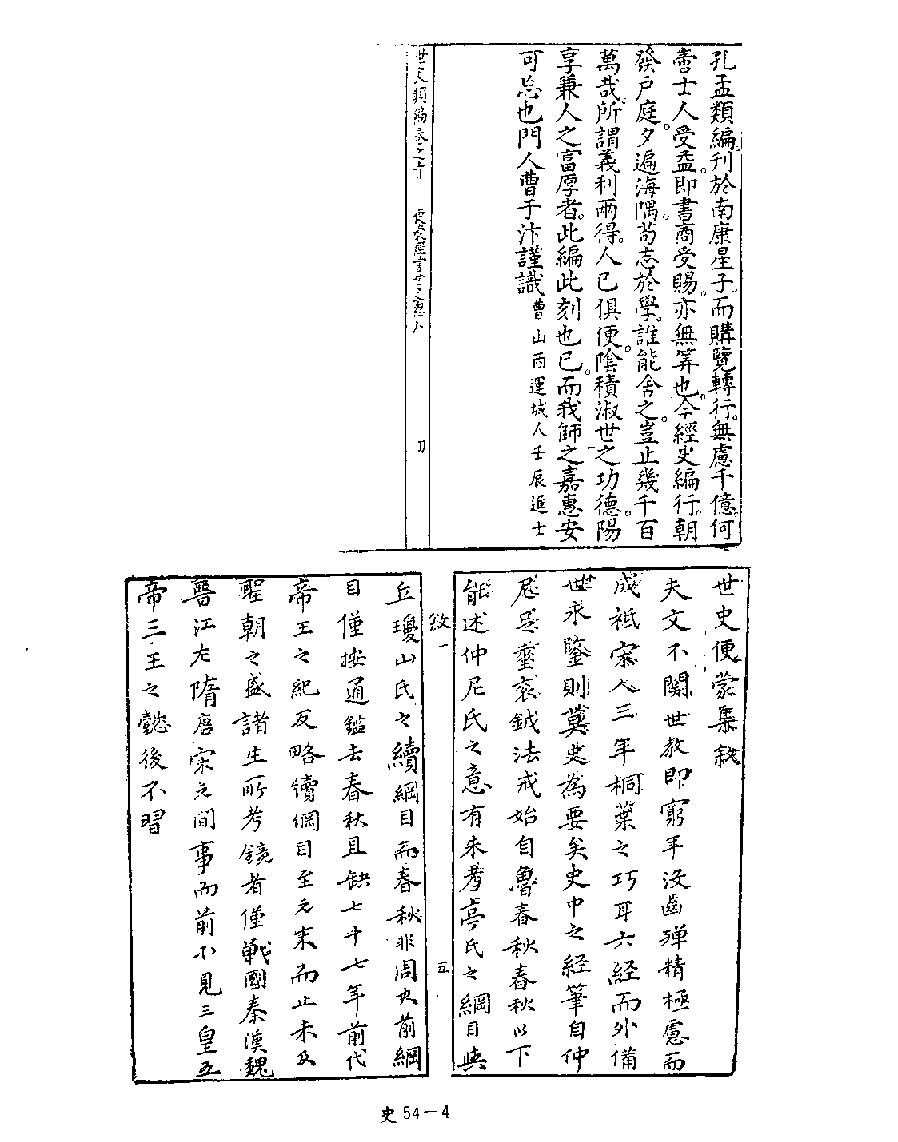 孔孟類編刊於南康星子而購覽轉行無慮千億何
啻士人受益即書商受賜亦無筭也今經史編行朝
發戶庭夕遍海隅苟志於學誰能舍之豈止幾千百
萬哉所謂義利兩得人已俱便陰積淑世之功德陽
享兼人之富厚者此編此刻也已而我師之嘉惠安
可忘也門人曹于汴謹識曹山西運城人壬辰進士
世史類編
世史便蒙集敘
夫文不關世教即窮年沒齒殫精極慮而
成祇宋人三年桐葉之巧耳六經而外備
世永鑒則莫史為要矣史中之經筆自仲
尼氏董袞鉞法戒始自魯春秋春秋以下
能述仲尼氏之意有朱考亭氏之綱目與
敘一
五
丘瓊山氏之續綱目而春秋非周以前綱
目僅按通鑑去春秋且缺七十七年前代
帝王之紀反略續綱目至元末而止未及
聖朝之盛諸生所考鏡者僅戰國秦漢魏
晉江左隋唐宋元間事而前不見三皇五
帝三王之懿後不習
史 54－4